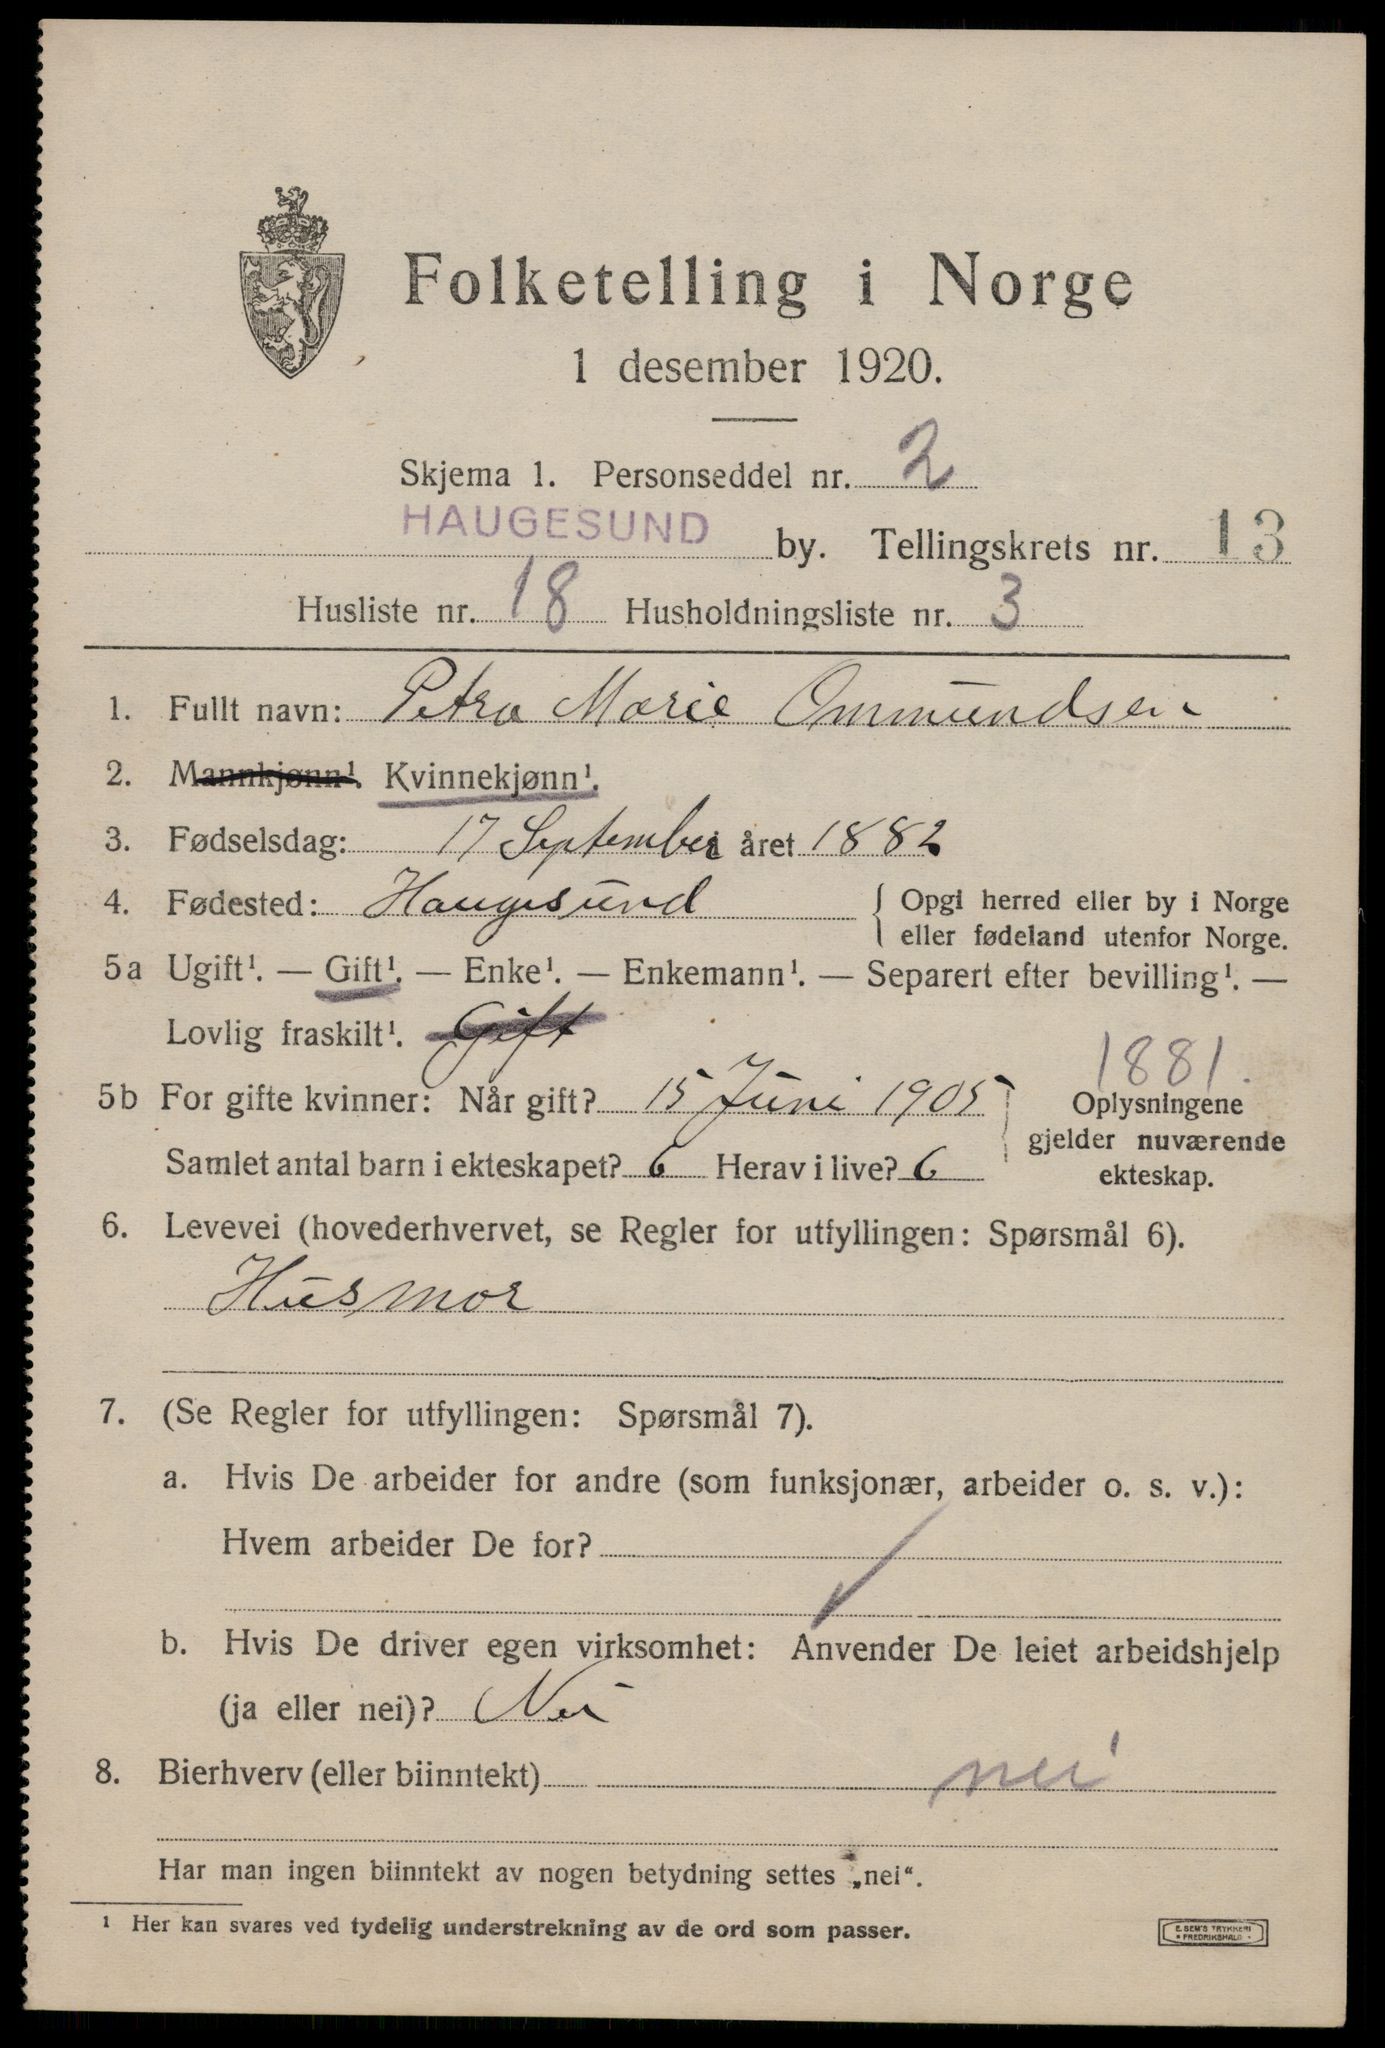 Folketelling i Norge
1 desember 1920.
Skjema 1. Personseddel nr. 2
HAUGESUND by. Tellingskrets nr. 13
Husliste nr. 18 Husholdningsliste nr. 3
1. Fullt navn: Petra Marie Ommundsen
2. Mannkjønn¹. Kvinnekjønn¹.
3. Fødselsdag: 17 September i året 1882
4. Fødested: Haugesund { Opgi herred eller by i Norge
eller fødeland utenfor Norge.
5a Ugift¹. — Gift¹. — Enke¹. — Enkemann¹. — Separert efter bevilling¹. —
Lovlig fraskilt¹. Gift
1881.
5b For gifte kvinner: Når gift? 15 Juni 1905 } Oplysningene
gjelder nuværende
Samlet antal barn i ekteskapet? 6 Herav i live? 6 ekteskap.
6. Levevei (hovederhvervet, se Regler for utfyllingen: Spørsmål 6).
Husmor
7. (Se Regler for utfyllingen: Spørsmål 7).
a. Hvis De arbeider for andre (som funksjonær, arbeider o. s. v.):
Hvem arbeider De for?
b. Hvis De driver egen virksomhet: Anvender De leiet arbeidshjelp
(ja eller nei)? Nei
8. Bierhverv (eller biinntekt) nei
Har man ingen biinntekt av nogen betydning settes „nei“.
¹ Her kan svares ved tydelig understrekning av de ord som passer.
E. SEM'S TRYKKERI
FREDRIKSHALD